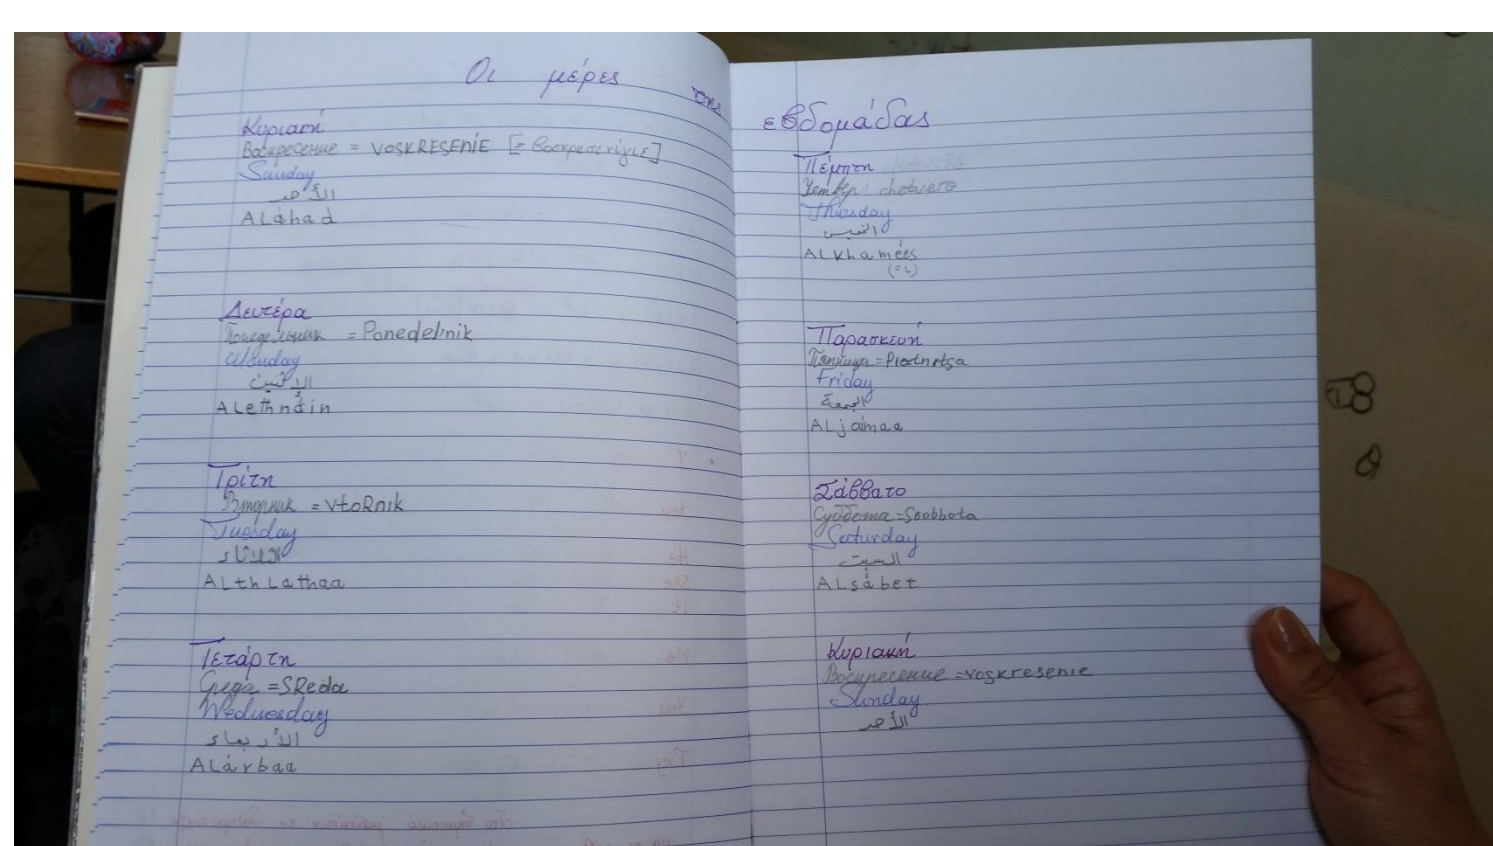 Οι μέρες της εβδομάδας
Κυριακή
Воскресение = VOSKRESENIE [= βοσκρεσενίγιε]
Sunday
الأحد
ALáhad
Δευτέρα
Понедельник = Ponedelnik
Monday
الإثنين
ALethnáin
Τρίτη
Вторник = VtoRnik
Tuesday
الثلاثاء
ALthLathaa
Τετάρτη
Среда = SReda
Wednesday
الأربعاء
ALárbaa
Πέμπτη
chetverG
Thusday
الخميس
ALkhamées
(=ι)
Παρασκευή
Пятница = Piatnitsa
Friday
الجمعة
ALjaimaa
Σάββατο
Суббота = Soobbota
Saturday
السبت
ALsábet
Κυριακή
Воскресение = voskresenie
Sunday
الأحد